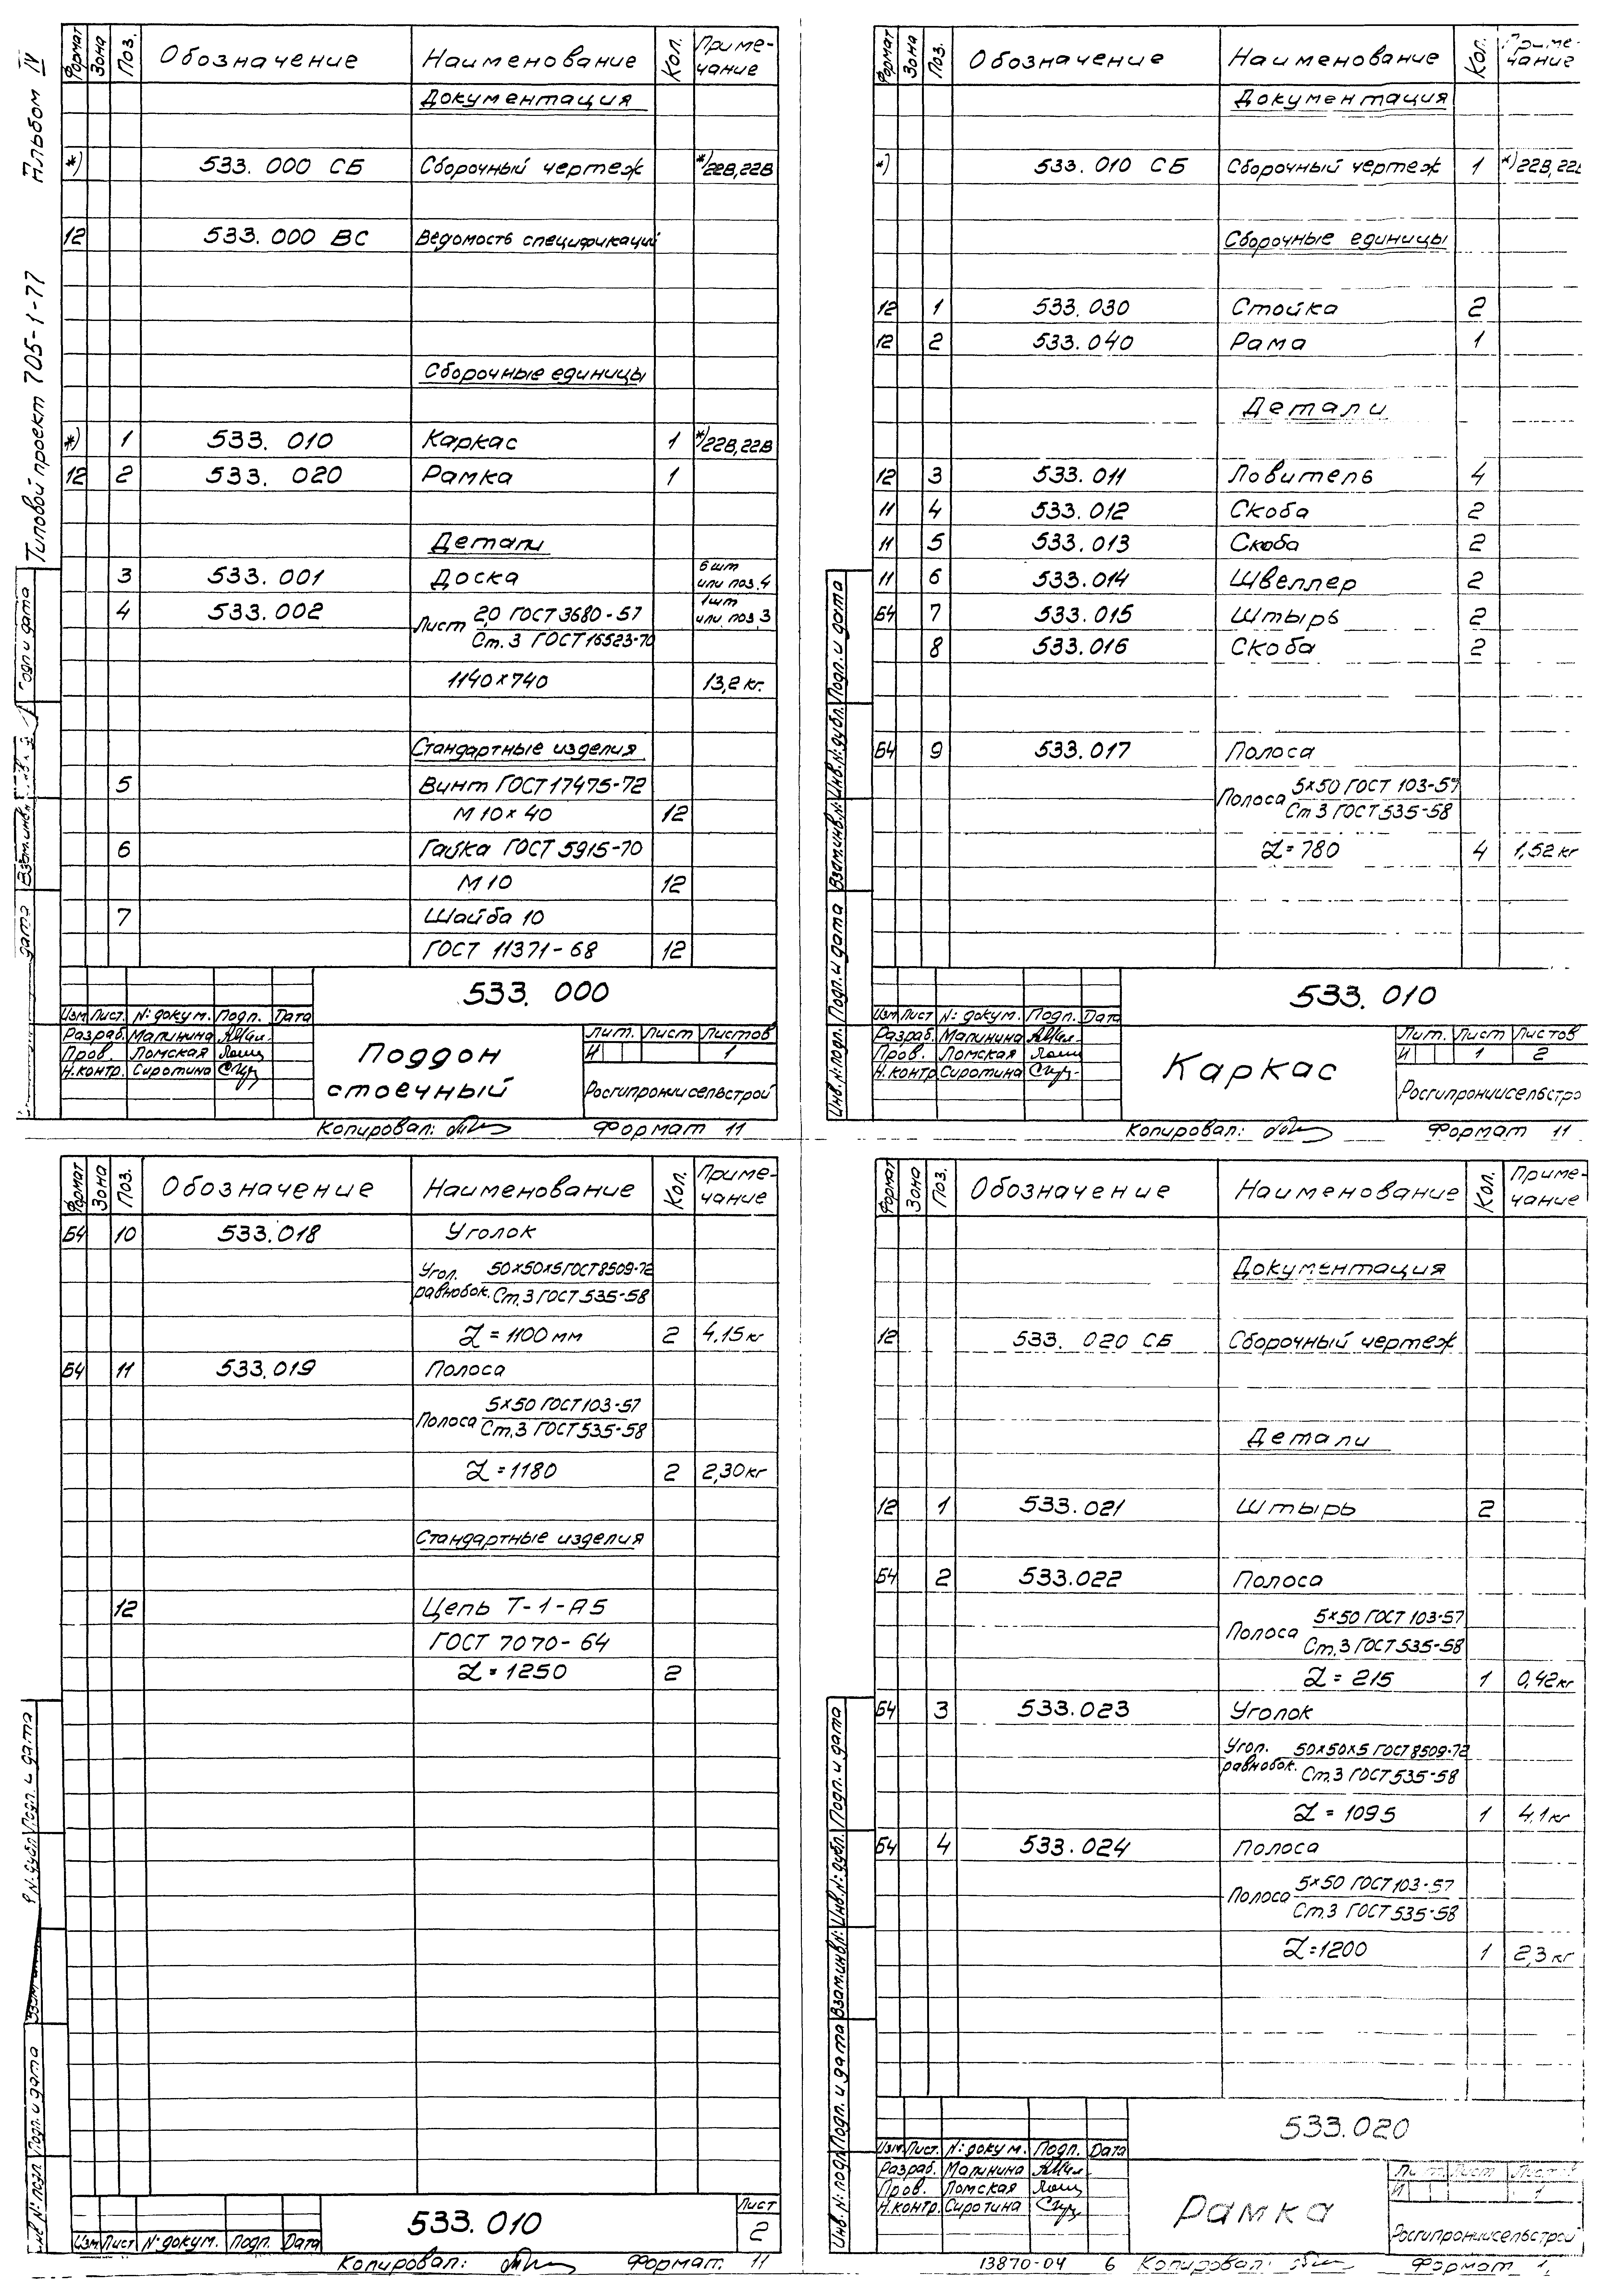 Альбом IV
Типовой проект 705-1-77
Формат Зона Поз. Обозначение Наименование Кол. Приме-
чание
Документация
*) 533. 000 СБ Сборочный чертеж *)22В,22В
12 533. 000 ВС Ведомость спецификаций
Сборочные единицы
*) 1 533. 010 Каркас 1 *)22В,22В
12 2 533. 020 Рамка 1
Детали
3 533. 001 Доска 6 шт
или поз.4
4 533. 002 Лист 2,0 ГОСТ 3680-57 1шт
или поз.3
Ст.3 ГОСТ 16523-70
1140×740 13,2 кг.
Стандартные изделия
5 Винт ГОСТ 17475-72
М 10×40 12
6 Гайка ГОСТ 5915-70
М 10 12
7 Шайба 10
ГОСТ 11371-68 12
533. 000
Изм Лист. №докум. Подп. Дата
Разраб. Малинина
Пров. Ломская
Н.контр. Сиротина
Поддон
стоечный
Лит. Лист Листов
И 1
Росгипрониисельстрой
Копировал: Формат 11
Подп и дата
дата
Формат Зона Поз. Обозначение Наименование Кол. Приме-
чание
Документация
*) 533. 010 СБ Сборочный чертеж 1 *)22В,22
Сборочные единицы
12 1 533. 030 Стойка 2
12 2 533. 040 Рама 1
Детали
12 3 533. 011 Ловитель 4
11 4 533. 012 Скоба 2
11 5 533. 013 Скоба 2
11 6 533. 014 Швеллер 2
Б4 7 533. 015 Штырь 2
8 533. 016 Скоба 2
Б4 9 533. 017 Полоса
Полоса 5×50 ГОСТ 103-57
Ст 3 ГОСТ 535-58
L=780 4 1,52 кг
Инв.№подл. Подп. и дата Взам.инв.№ Инв.№дубл. Подп. и дата
533. 010
Изм Лист №докум. Подп. Дата
Разраб. Малинина
Пров. Ломская
Н.контр Сиротина
Каркас
Лит. Лист Листов
И 1 2
Росгипрониисельстро
Копировал: Формат 11
Формат Зона Поз. Обозначение Наименование Кол. Приме-
чание
Б4 10 533.018 Уголок
Угол.
равнобок. 50×50×5 ГОСТ 8509-72
Ст.3 ГОСТ 535-58
L = 1100 мм 2 4,15 кг
Б4 11 533.019 Полоса
Полоса 5×50 ГОСТ 103-57
Ст.3 ГОСТ 535-58
L = 1180 2 2,30 кг
Стандартные изделия
12 Цепь Т-1-А5
ГОСТ 7070-64
L = 1250 2
№дубл Подп. и дата
Подп. и дата
№подл.
Изм Лист №докум. Подп. Дата
533.010
Лист
2
Копировал: Формат. 11
Формат Зона Поз. Обозначение Наименование Кол. Приме-
чание
Документация
12 533. 020 СБ Сборочный чертеж
Детали
12 1 533.021 Штырь 2
Б4 2 533.022 Полоса
Полоса 5×50 ГОСТ 103-57
Ст.3 ГОСТ 535-58
L = 215 1 0,42кг
Б4 3 533.023 Уголок
Угол.
равнобок. 50×50×5 ГОСТ 8509-72
Ст.3 ГОСТ 535-58
L = 1095 1 4,1 кг
Б4 4 533.024 Полоса
Полоса 5×50 ГОСТ 103-57
Ст.3 ГОСТ 535-58
L=1200 1 2,3 кг
Инв.№подл Подп. и дата Взам.инв.№ Инв.№дубл. Подп. и дата
533.020
Изм Лист. №докум. Подп. Дата
Разраб. Малинина
Пров. Ломская
Н.контр. Сиротина
Рамка
Лит. Лист Листов
И 1
Росгипрониисельстрой
13870-04 6 Копировал: Формат